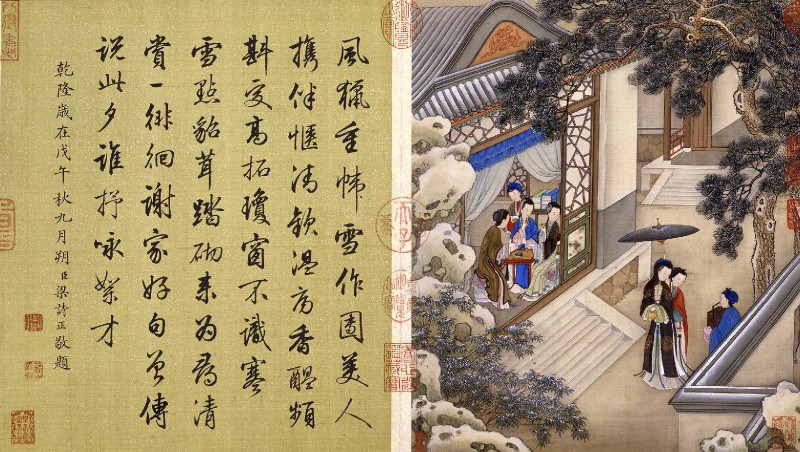 風獵重幃雪作團美人
携伴愜清歡温房香醖頻
斟處高拓瓊窗不識寒
雪點貂茸踏砌来为尋清
賞一徘徊謝家好句曾傳
説此夕誰抒咏絮才
乾隆歲在戊午秋九月朔臣梁詩正敬題